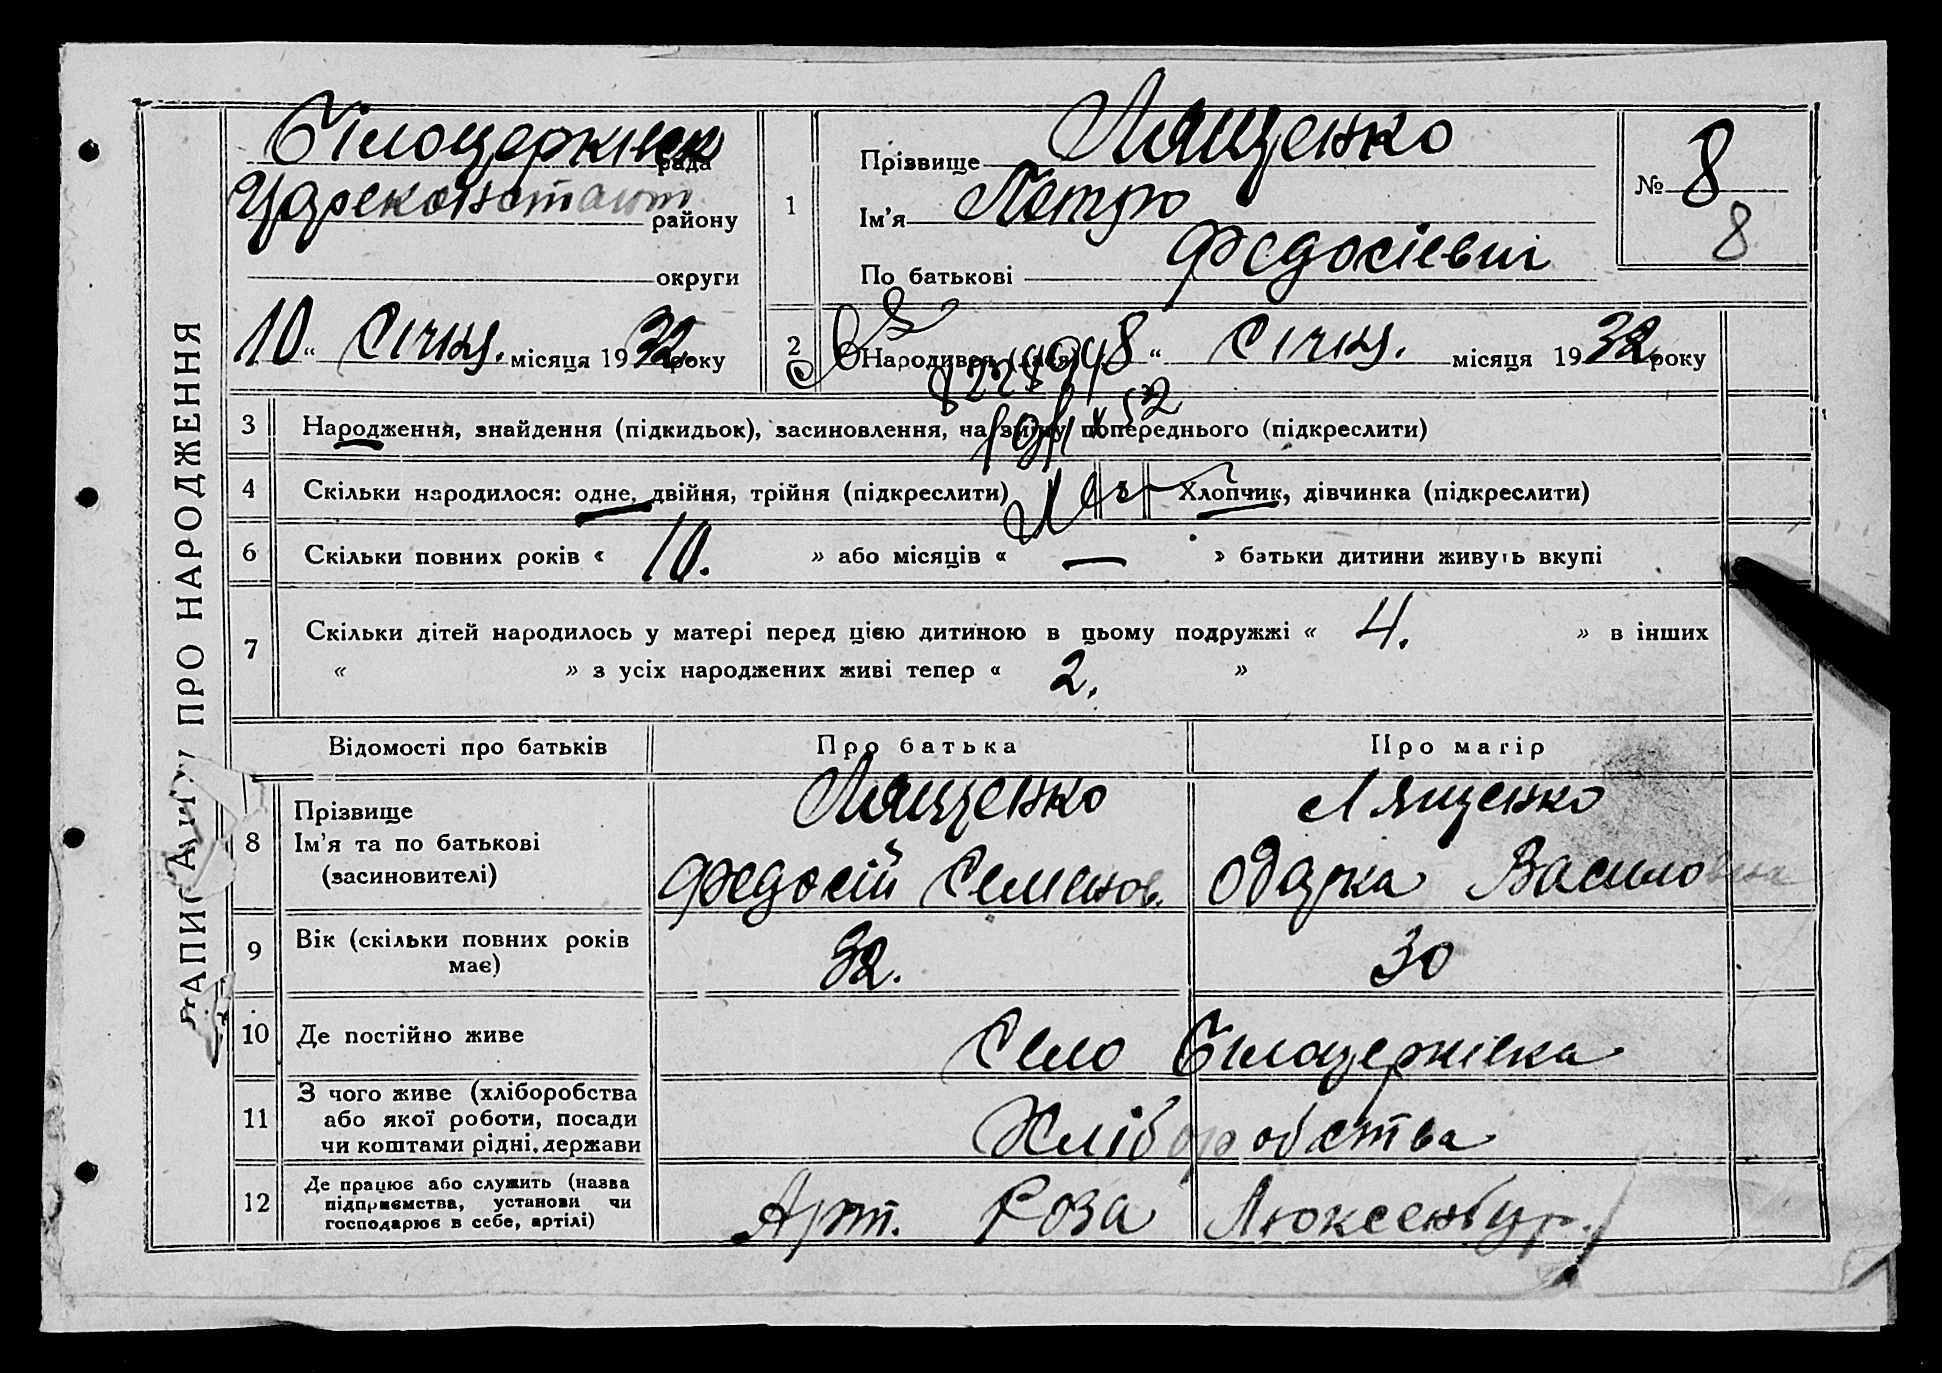 ЗАПИС АКТУ ПРО НАРОДЖЕННЯ
Білоцерківск рада
Цареконстант району
округи
10 " Січня. місяця 1932. року
1
Прізвище Лященко
Ім'я Петро
По батькові Федосієвич
№ 8
8
2 Народився (лася) 8 " Січня. місяця 1932. року
3 Народження, знайдення (підкидьок), засиновлення, на зміну попереднього (підкреслити)
4 Скільки народилося: одне, двійня, трійня (підкреслити) Хлопчик, дівчинка (підкреслити)
6 Скільки повних років « 10. » або місяців « — » батьки дитини живуть вкупі
7 Скільки дітей народилось у матері перед цією дитиною в цьому подружжі « 4. » в інших
« » з усіх народжених живі тепер « 2. »
Відомості про батьків Про батька Про матір
8 Прізвище Лященко Лященко
Ім'я та по батькові Федосій Семенов. Одарка Василовна
(засиновителі)
9 Вік (скільки повних років має) 32. 30
10 Де постійно живе Село Білоцерківка
11 З чого живе (хліборобства
або якої роботи, посади
чи коштами рідні, держави Хліборобства
12 Де працює або служить (назва
підприємства, установи чи
господарює в себе, артілі) Арт. Роза Люксенбур.